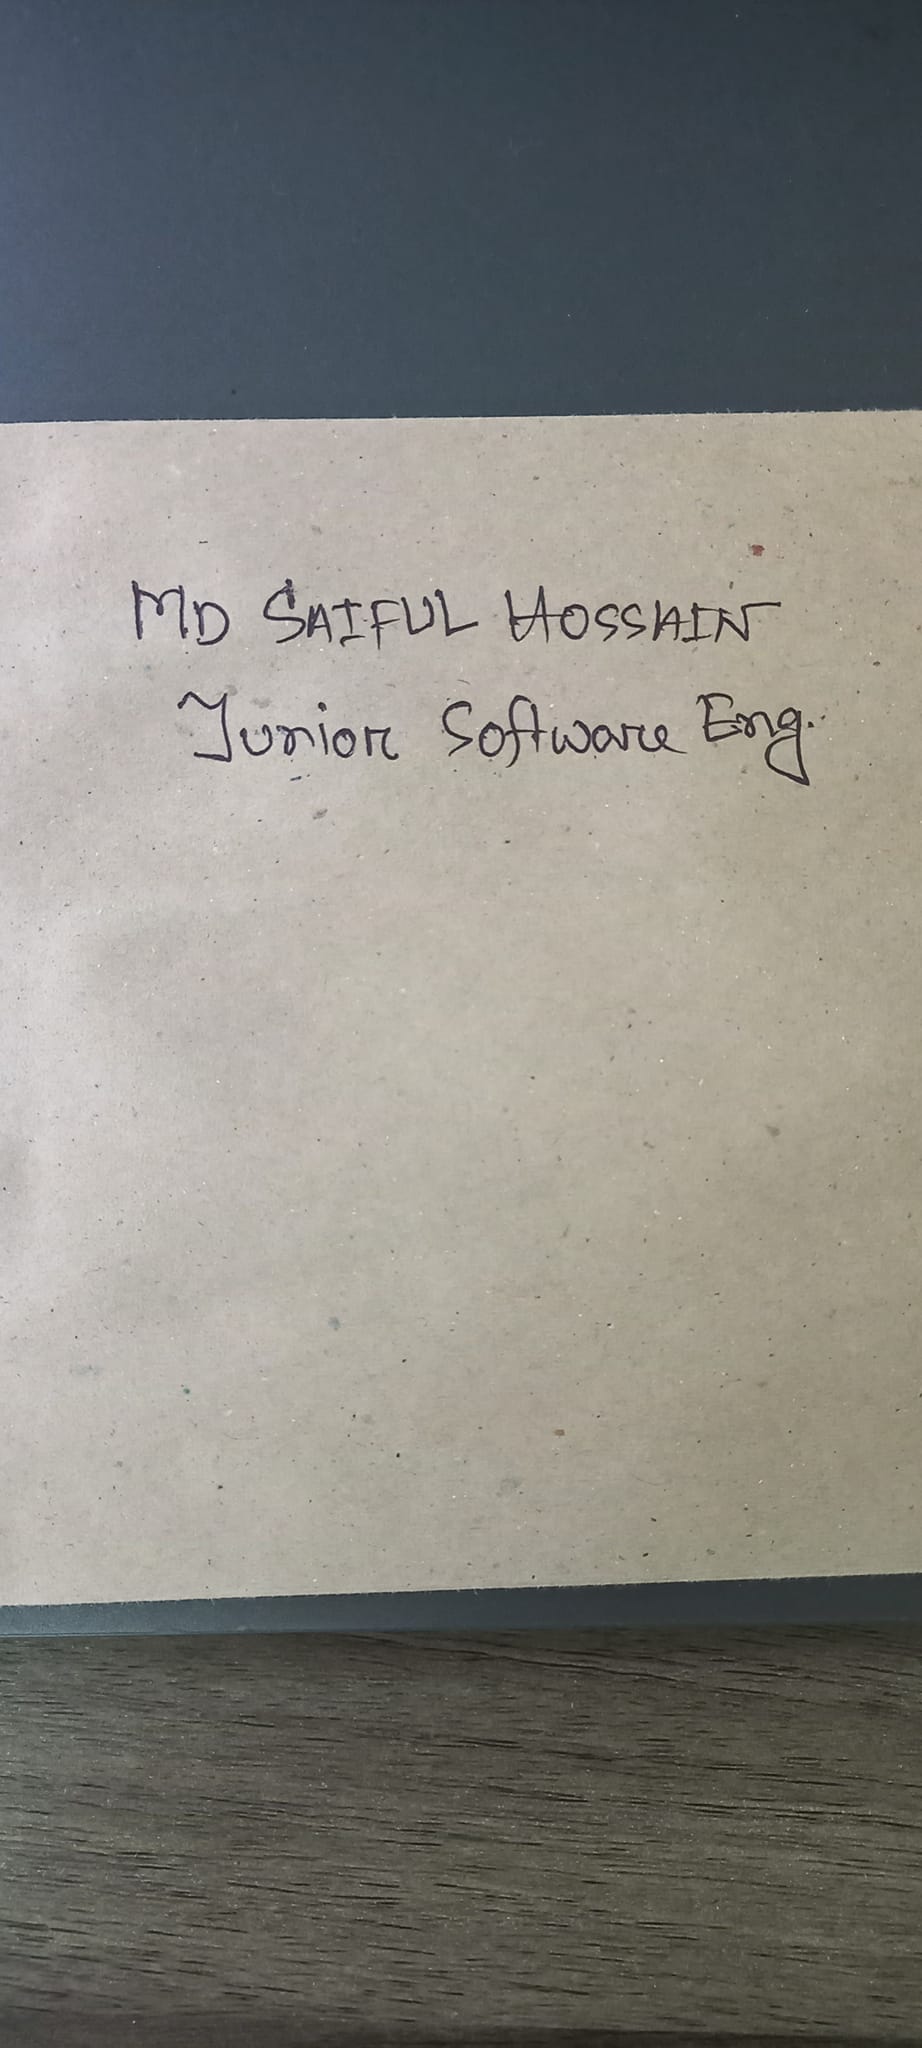 MD SAIFUL HOSSAIN
Junior Software Eng.